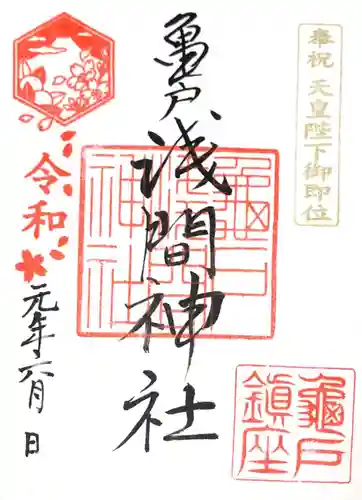 奉祝 天皇陛下御即位
亀戸浅間神社
龜戸
浅間
神社
令和
元年六月 日
龜戸
鎮座